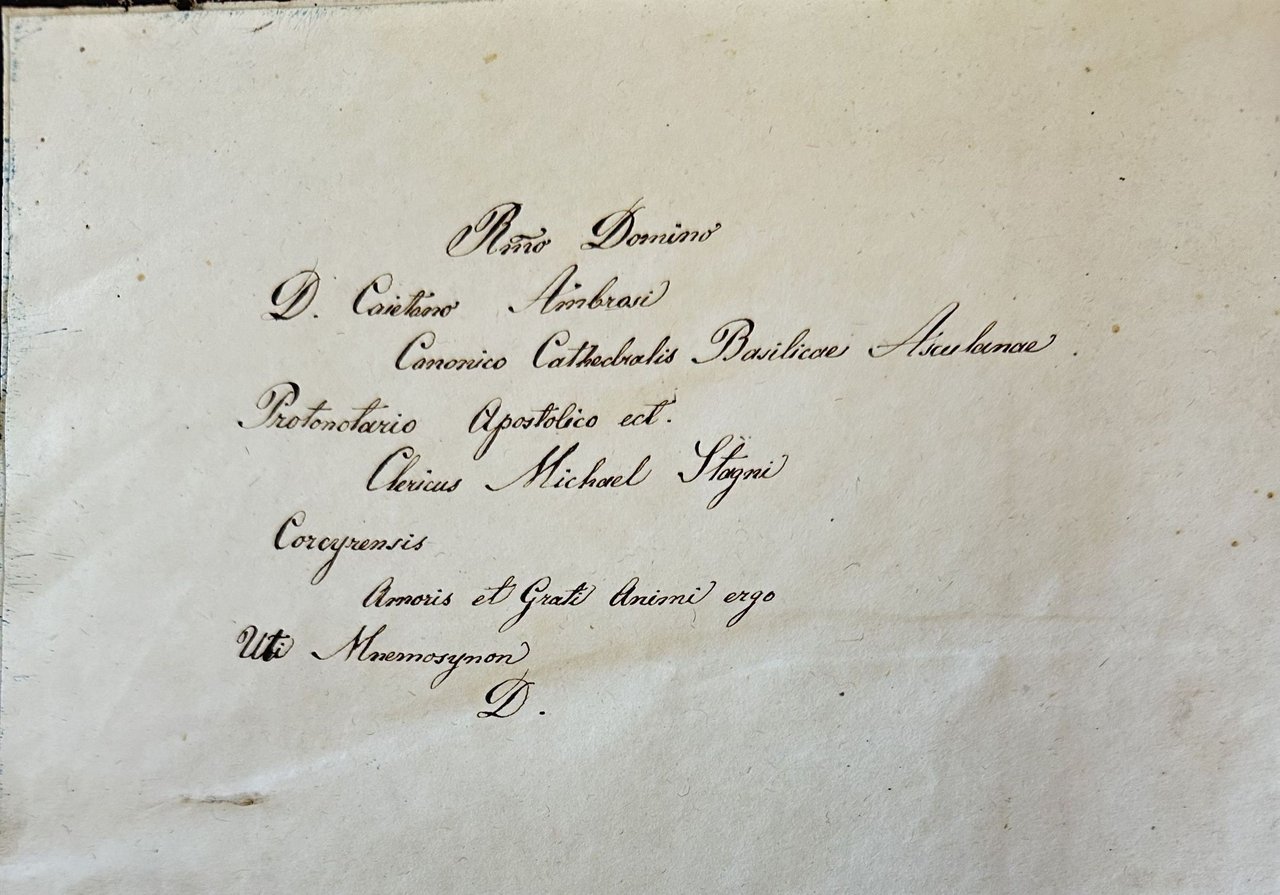 Rm̃o Domino
D. Caietano Ambrosi
Canonico Cathedralis Basilicae Asculanae
Protonotario Apostolico ect.
Clericus Michael Stagni
Corcyrensis
Amoris et Grati Animi ergo
Uti Mnemosynon
D.